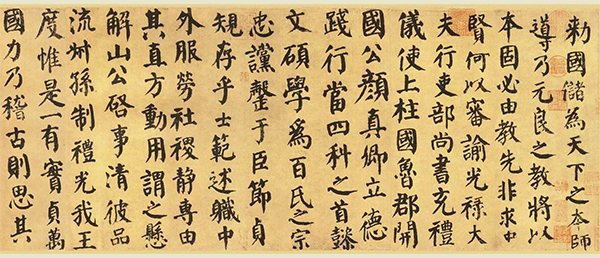 勅國儲為天下之本師
導乃元良之教將以
本固必由教先非求忠
賢何以審諭光祿大
夫行吏部尚書充禮
儀使上柱國魯郡開
國公顏真卿立德
踐行當四科之首懿
文碩學為百氏之宗
忠讜罄于臣節貞
規存乎士範述職中
外服勞社稷靜專由
其直方動用謂之懸
解山公啓事清彼品
流叔孫制禮光我王
度惟是一有實貞萬
國力乃稽古則思其